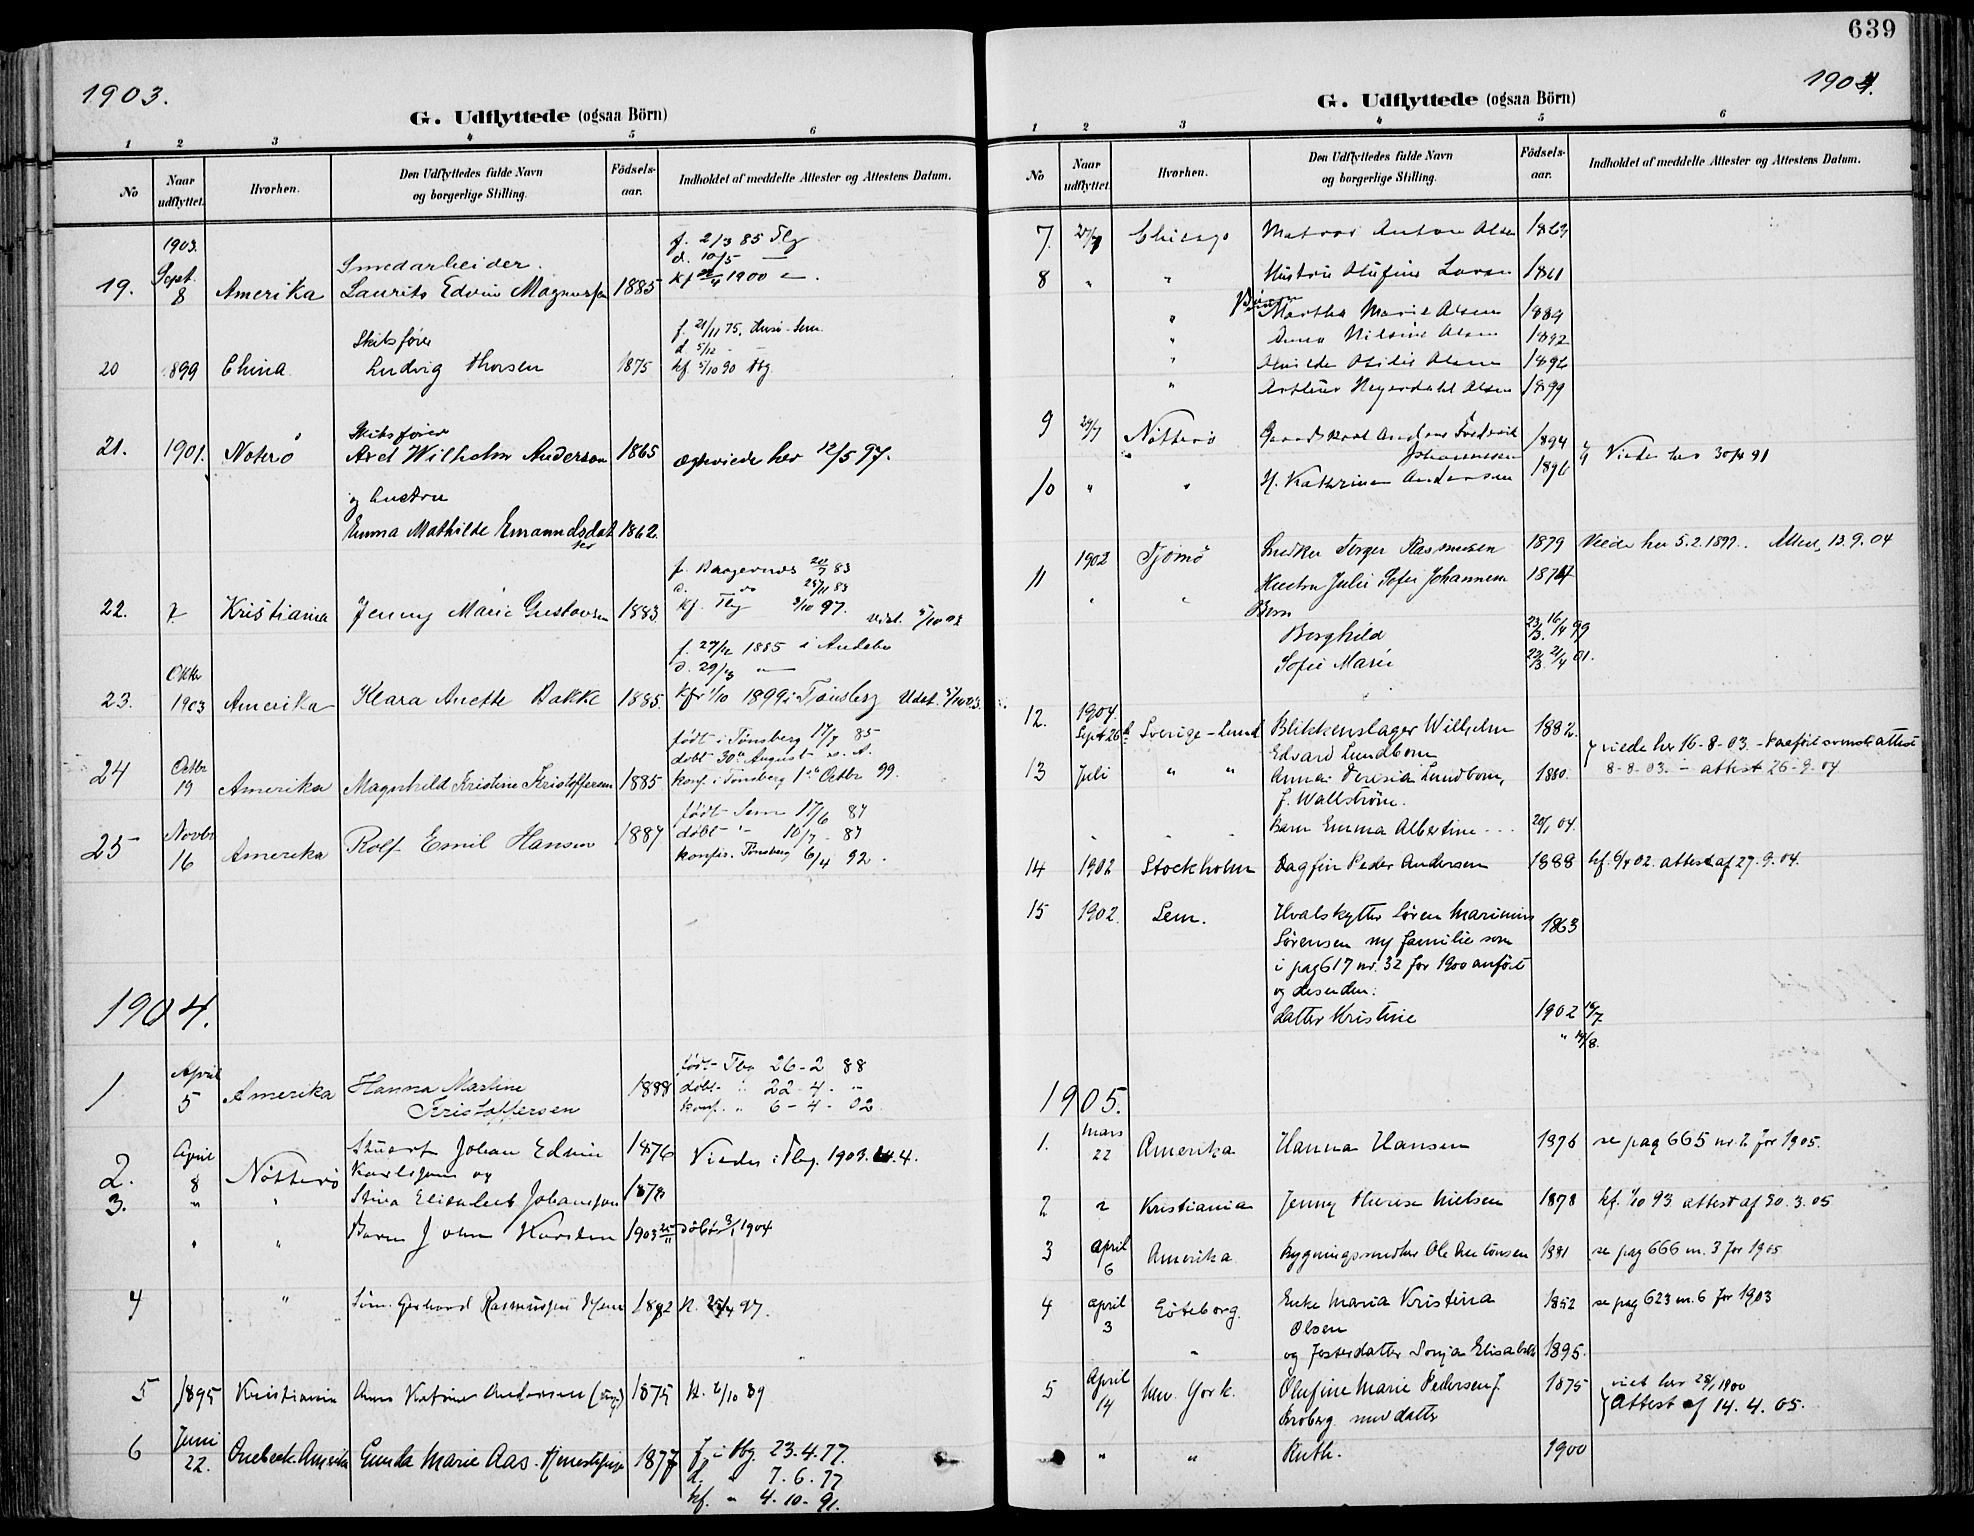 1903.
G. Udflyttede (ogsaa Börn)
1 2 3 4 5 6
No
Naar udflyttet.
Hvorhen.
Den Udflyttedes fulde Navn og borgerlige Stilling.
Födsels-aar.
Indholdet af meddelte Attester og Attestens Datum.
1903.
f. 2/3 85 Tbg
d. 10/5 —
Smedarbeider.
19. Sept. 8 Amerika Laurits Edvin Magnussen 1885 kf 1900 —.
f. 21/11 75. Sem
Skibsfører
d 5/12 —
20 1899 China Ludvig Thorsen 1875 kf. 5/10 90 Tbg
Skibsfører
21. 1901. Noterö Axel Wilhelm Anderson 1865 Ægteviede her 12/5 97.
og hustru
Emma Mathilde Emanuelsdatter 1862.
f. Bragernes 83
d. do 83
22. Kristiania Jenny Marie Gustavsen 1883 kf. Tbg 3/10 97. Udst. 5/10 03
f. 27/2 1885 i Andebo
d. 29/3 —
23. Oktbr 1903 Amerika Klara Anette Bakke 1885. kfr 1/10 1899 i Tønsberg Udst. 5/10 03.
født i Tønsberg 17/7 85
døbt 30te August s. A.
24 Octbr 19 Amerika Magnhild Kristine Kristoffersen 1885 konf. i Tønsberg 1ste Octbr 99.
født Sem 17/6 87
døbt " 10/7 - 87
25 Novbr 16 Amerika Rolf Emil Hansen 1887 konfir. Tønsberg 6/4 92.
1904.
født Tbg 26-2 88
1 April 5 Amerika Hanna Martine 1888 døbt " 22-4- "
Kristoffersen konf. " 6-4-02
2. April 8 Nøtterø Stuart Johan Edvin 1876 Viede i Tbg. 1903. 4.
Karlsson og
3. " " Stina Elisabet Johansson 1878
" " Barn John Karsten 1903 døbt 3/1 1904
4 " Søm. Gerhard Rasmussen 1882 K. 97.
5 1895 Kristiania Anna Katrine Andersen 1875 K. 2/10 89
6 Juni 22. Amerika Gunda Marie Aas. 1877 f. i Tbg. 23.4.77.
d. " 7.6.77
kf. " 4.10.91.
639
1904.
G. Udflyttede (ogsaa Börn)
1 2 3 4 5 6
No
Naar udflyttet.
Hvorhen.
Den Udflyttedes fulde Navn og borgerlige Stilling.
Födsels-aar.
Indholdet af meddelte Attester og Attestens Datum.
7. 27/7 Chicago Matros Anton Olsen 1869
8 " " Hustru Olufine Larsen 1861
Børn
" Martha Marie Olsen 1884
" Anna Nilsine Olsen 1892
" Olsen 1896
" Arthur Heyerdahl Olsen 1899
9 29/7 Nøtterø Gaardskarl Anders Fredrik 1894
Johannessen Viede her 30/4 91
10 " " H. Kathrine Andersen 1896
1902 Tjømø Snedker Torger Rasmussen 1879 Viede her 5.2.1899. Attest. 13.9.04
11 " " Hustru Julie Sofie Johannesen 1874
Børn
Borghild 23/3 16/4 99
Sofie Marie 22/3 21/4 01.
12. 1904. Sept 26de Sverige - Lund Blikkenslager Wilhelm 1882.
Edvard Lundbom viede her 16-8-03. - Forevist svensk attest
13 Juli " " Anna Teresia Lundbom, 1880. 8-8-03. - attest 26-9.04
f. Wallstrøm.
" " " Barn Emma Albertine... 20/1 04.
14 1902 Stockholm Dagfin Peder Andersen 1888 kf. 6/4 02. attest af 27.9.04.
15 1902. Sem. Hvalskytter Søren Marinius 1863
Sørensen m/ familie som
i pag 617 nr. 32 for 1900 anført
og desuden:
datter Kristine 1902 16/7
" 14/8.
1905.
1. Mars 22 Amerika Hanna Hansen 1876 se pag 665 nr. 2 for 1905.
2 " Kristiania Jenny Therese Nielsen 1878 kf. 1/10 93. attest af 30.3.05
3 April 6 Amerika Bygningssnedker Ole Antonsen 1881 se pag 666 nr. 3 for 1905
4 April 3 Göteborg. Enke Maria Kristina 1852 se pag 623 nr. 6 for 1903
Olsen
" og fosterdatter Sonja Elisabeth 1895.
5 April 14 New York. Olufine Marie Pedersen f. 1875 viet her 28/1 1900
Broberg med datter Attest af 14.4.05.
" " Ruth. 1900